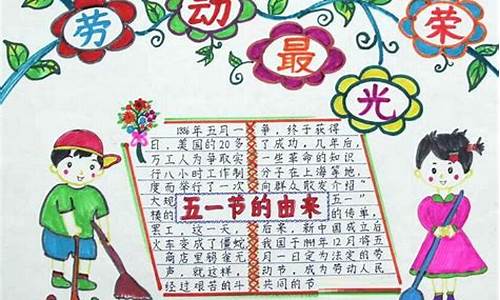 劳动最光荣
五一节的由来
1886年五月一
日,美国的20多
万工人为争取实
行八小时工作制
度而举行了一次
大
模的
罢工,这一天
火车变成了僵蛇
商店里鸦雀无
声,就这样,
经过艰苦的斗
争,终于获得
了成功,几年后,
一些革命的知识
分子在上海等地,
向群众散发介绍
"五一"
的传单,
后来,新中国成立后
我国于1949年12月将五
月一日定为法定的劳
动节,成为劳动人民
共同的节